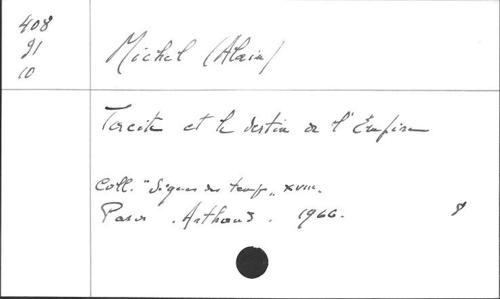 408
91
10
Michel (Alain)
Tacite et le destin de l'Empire
Coll. "Signes des temps" XVIII.
Paris . Arthaud . 1966.
8